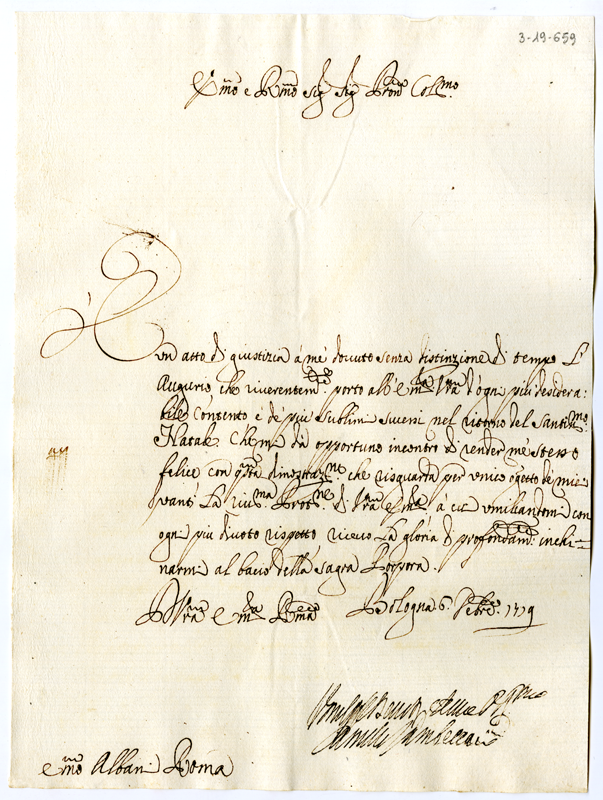 3-19-659
E.mo e R.mo Sig.r Sig.r Pron.e Col.mo
È
un atto di giustizia à me dovuto senza distinzione di tempo L'
Augurio che riverentem.te porto all'E.mza V.ra d'ogni più desidera:
bile contento e de più sublimi successi nel ritorno del Santiss.mo
Natale. Che mi dà opportuno incontro di render me stesso
felice con q.sta dimostraz.ne che risguarda per unico ogetto de miei
vanti La riv.ma Prot.ne di V.ra E.mza à cui umiliandomi con
ogni più divoto rispetto ricevo La gloria di profondam.te inchi=
narmi al bacio della sagra Porpora.
Di V.ra E.mza R.ma Bologna 6. Xbre. 1719
Camillo
E.mo Albani Roma